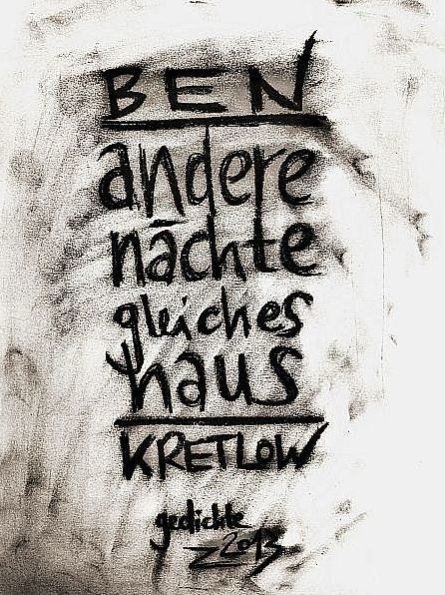 BEN
andere
nächte
gleiches
haus
KRETLOW
gedichte
2013